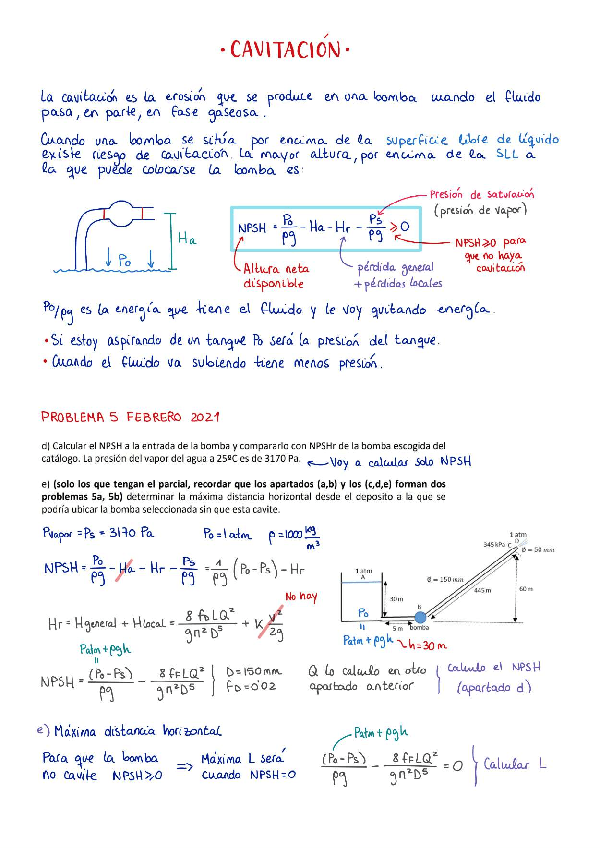 · CAVITACIÓN ·
La cavitación es la erosión que se produce en una bomba cuando el fluido
pasa, en parte, en fase gaseosa.
Cuando una bomba se sitúa por encima de la superficie libre de líquido
existe riesgo de cavitación. La mayor altura, por encima de la SLL a
la que puede colocarse la bomba es:
Ha
Po
NPSH = Po/ρg - Ha - Hr - Ps/ρg ≥ 0
Presión de saturación
(presión de vapor)
NPSH≥0 para
que no haya
cavitación
Altura neta
disponible
pérdida general
+ pérdidas locales
Po/ρg es la energía que tiene el fluido y le voy quitando energía.
• Si estoy aspirando de un tanque Po será la presión del tanque.
• Cuando el fluido va subiendo tiene menos presión.
PROBLEMA 5 FEBRERO 2021
d) Calcular el NPSH a la entrada de la bomba y compararlo con NPSHr de la bomba escogida del
catálogo. La presión del vapor del agua a 25ºC es de 3170 Pa. ← Voy a calcular solo NPSH
e) (solo los que tengan el parcial, recordar que los apartados (a,b) y los (c,d,e) forman dos
problemas 5a, 5b) determinar la máxima distancia horizontal desde el deposito a la que se
podría ubicar la bomba seleccionada sin que esta cavite.
Pvapor = Ps = 3170 Pa Po = 1 atm ρ = 1000 kg/m³
NPSH = Po/ρg - Ha - Hr - Ps/ρg = 1/ρg (Po - Ps) - Hr
No hay
Hr = Hgeneral + Hlocal = 8 fD LQ²/gπ²D⁵ + K v²/2g
1 atm
A
30m
Po
=
Patm + ρgh
h = 30 m
5 m
bomba
B
Ø = 150 mm
445m
60 m
345 kPa C
D
1 atm
Ø = 50 mm
Patm + ρgh
=
NPSH = (Po - Ps)/ρg - 8 fF LQ²/gπ²D⁵
D = 150 mm
fD = 0'02
Q lo calculo en otro
apartado anterior
Calculo el NPSH
(apartado d)
e) Máxima distancia horizontal
Para que la bomba
no cavite NPSH≥0
⇒ Máxima L será
cuando NPSH=0
Patm + ρgh
(Po - Ps)/ρg - 8 fF LQ²/gπ²D⁵ = 0
Calcular L